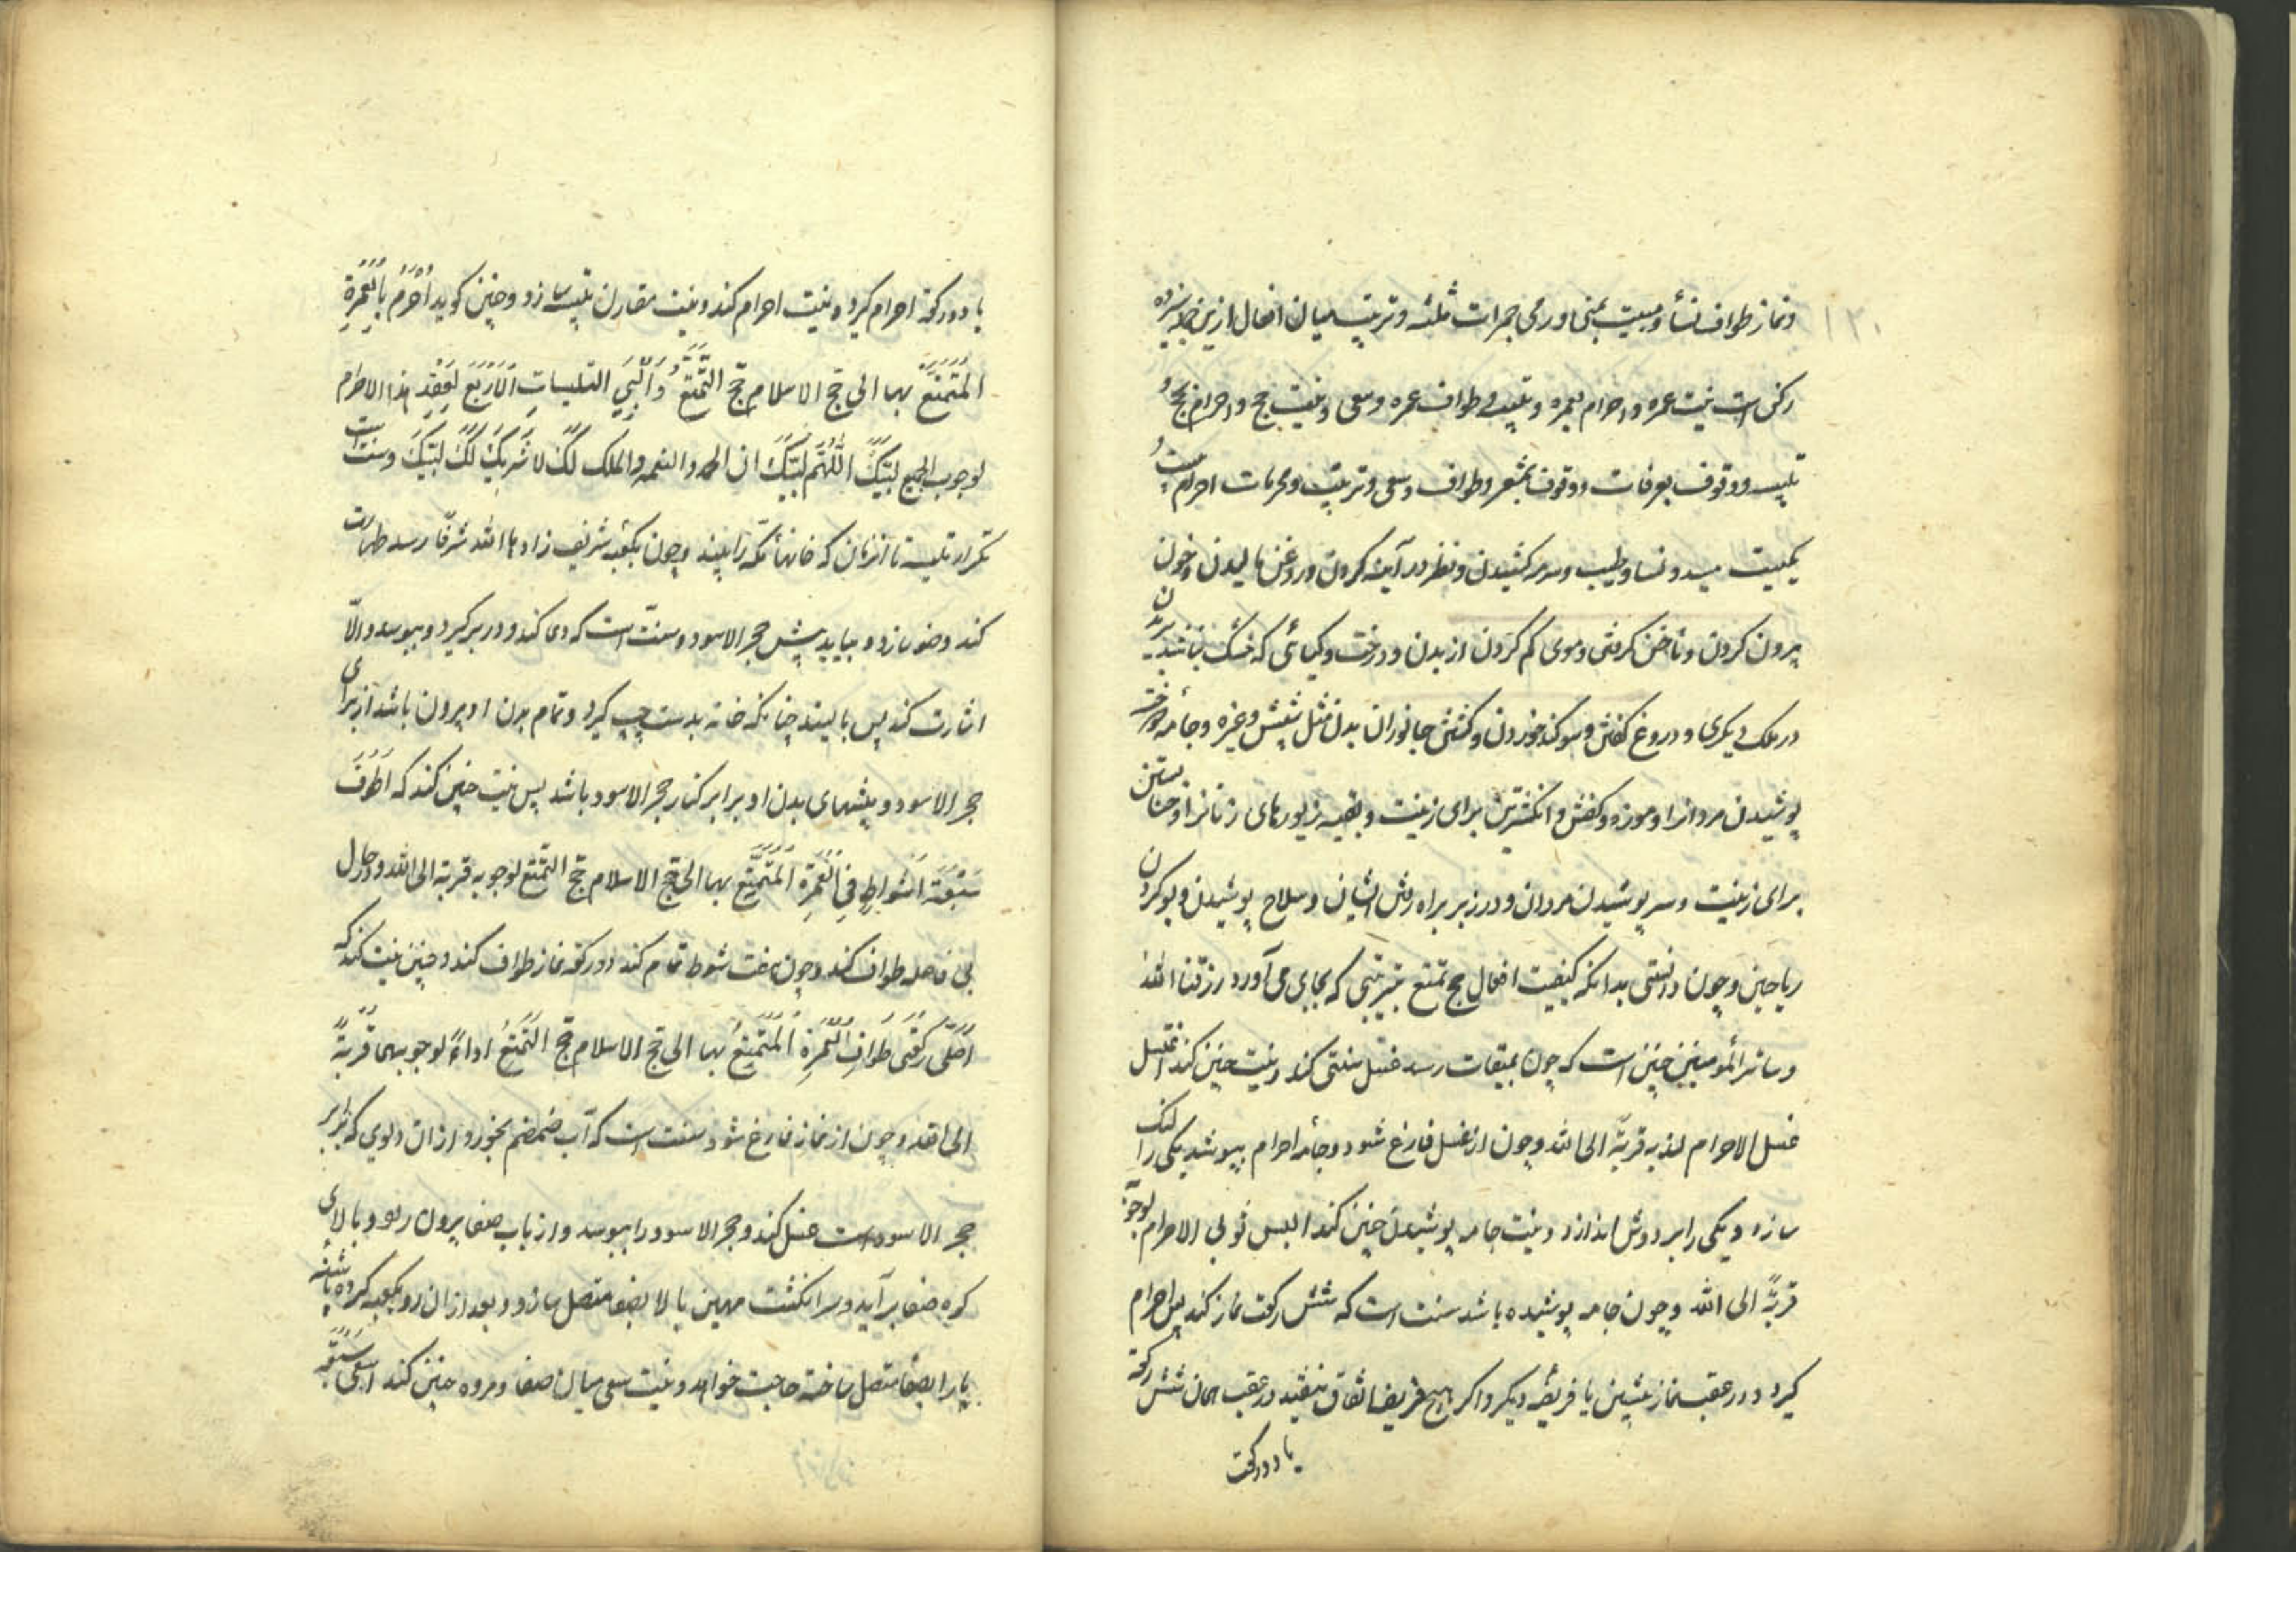 ۱۲۰
ونماز طواف نسأ ومبیت بمنی ورمی جمرات ثلثه وترتیب میان افعال ازین جمله سیزده
رکن است نیت عمره واحرام بعمره وتلبیه وطواف عمره وسعی ونیت حج واحرام بحج و
تلبیه ووقوف بعرفات ووقوف بمشعر وطواف وسعی وترتیب ومحرمات احرام بیست و
یکیست صید ونسا وطیب وسرمه کشیدن ونظر در آینه کردن وروغن مالیدن وخون
بیرون کردن وناخن گرفتن وموی کم کردن از بدن ودرخت وگیائی که خشک نباشد بریدن
در ملک دیگری ودروغ گفتن وسوگند خوردن وکشتن جانوران بدن مثل شپش وغیره وجامهٔ دوخته
پوشیدن مردانرا وموزه وکفش وانگشترین برای زینت وبقیه زیورهای زنانرا وحنا بستن
برای زینت وسر پوشیدن مردان ودر زیر براه رفتن ایشان وسلاح پوشیدن وبو کردن
ریاحین وچون دانستی بدانکه کیفیت افعال حج تمتع بترتیبی که بجای می آورد رزقنا الله
وسائر المؤمنین چنین است که چون بمیقات رسد غسل سنتی کند ونیت چنین کند اغتسل
غسل الاحرام لندبه قربةً الی الله وچون از غسل فارغ شود دو جامهٔ احرام بپوشد یکی را لنگ
سازد ویکی را بر دوش اندازد ونیت جامه پوشیدن چنین کند البس ثوبی الاحرام لوجوبه
قربةً الی الله وچون جامه پوشیده باشد سنت است که شش رکعت نماز کند پس احرام
گیرد ودر عقب نماز پیشین یا فریضهٔ دیگر واگر هیچ فریضه اتفاق نیفتد در عقب همان شش رکعة
یا دو رکعت
یا دو رکعة احرام گیرد ونیت احرام کند ونیت مقارن تلبیه سازد وچنین گوید اُحْرِمُ بِالْعُمْرَةِ
الْمُتَمَتَّعِ بها الی حج الاسلام حَجِّ التَّمَتُّعِ وَاُلَبِّي التلبیات الْاَرْبَعَ لِعَقْدِ هذا الاحرام
لوجوب الجمیع لَبَّیْكَ اللّٰهُمَّ لَبَّیْكَ ان الحمد والنعمه والملك لَكَ لا شَرِیْكَ لَكَ لَبَّیْكَ وسنت است
تکرار تلبیه تا انزمان که خانهاء مکه را بیند وچون بکعبه شریف زادها الله شرفاً رسد طهارت
کند وضو سازد وبیاید پیش حجر الاسود وسنّت است که دعا کند ودر بر گیرد وببوسد والّا
اشارت کند پس بایستد چنانکه خانه بدست چپ گیرد وتمام بدن او بیرون باشد از برای
حجر الاسود وپیشهای بدن او برابر کنار حجر الاسود باشد پس نیت چنین کند که اَطُوْفُ
سَبْعَةَ اَشْوَاطٍ فِي الْعُمْرَةِ الْمُتَمَتَّعِ بها الی حج الاسلام حج التمتع لوجوبه قربة الی الله ودر حال
بی فاصله طواف کند وچون هفت شوط تمام کند دو رکعة نماز طواف کند وچنین نیت کند که
اُصَلِّي رَکْعَتَي طَوَافِ الْعُمْرَةِ الْمُتَمَتَّعِ بها الی حج الاسلام حج التَّمَتُّعِ اداءً لوجوبهما قُرْبَةً
الی الله وچون از نماز فارغ شود سنت است که آب ضمضم بخورد وازان دلوی که برابر
حجر الاسود است غسل کند وحجر الاسود را ببوسد واز باب صفا بیرون رود وبالای
کوه صفا بر آید وسر انگشت مهین با لا بصفا متصل سازد وبعد ازان رو بکعبه کرده پاشنه
پا را بصفا متصل ساخته حاجت خواهد ونیت سعی میان صفا ومروه چنین کند اسعی سَبْعَةَ